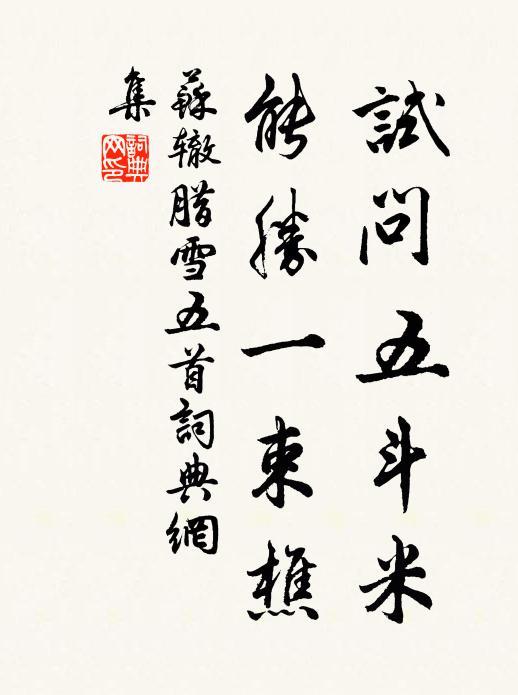 試問五斗米
能勝一束樵
蘇辙腊雪五首詞典網
集
詞典
网印